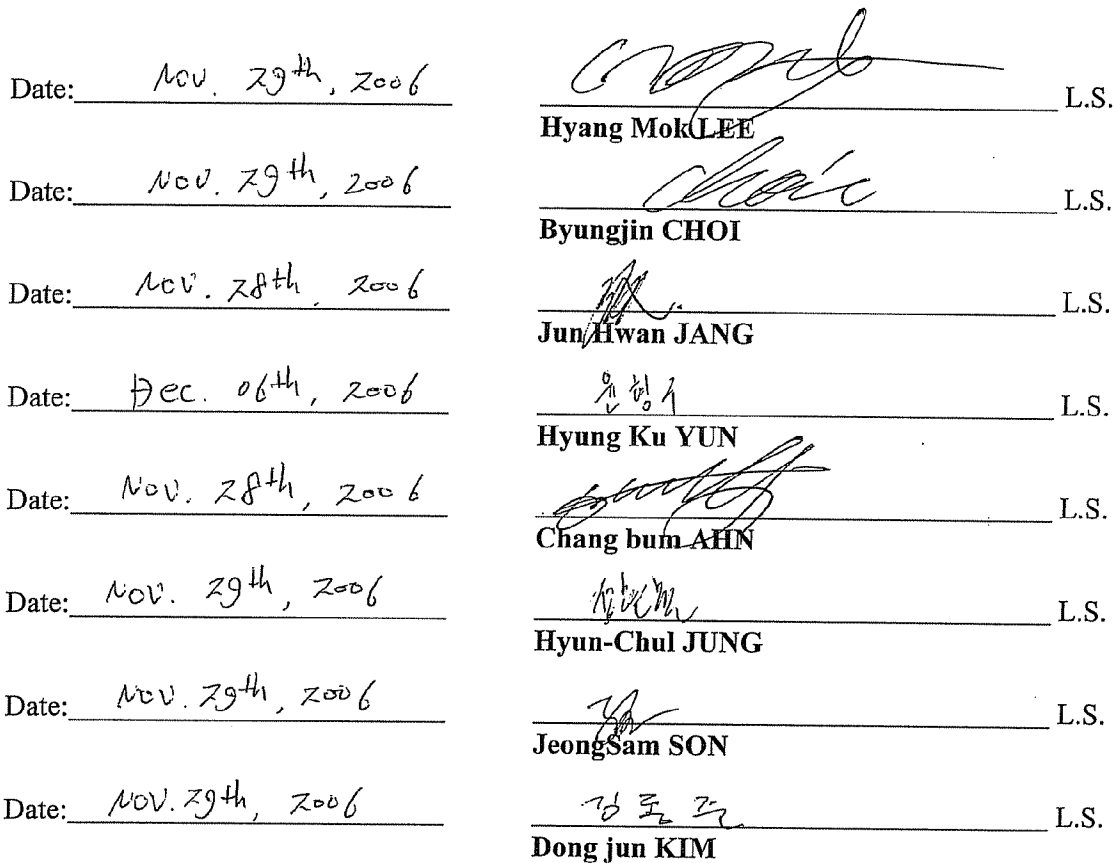 Date: Nov. 29th, 2006 L.S.
Hyang Mok LEE
Date: Nov. 29th, 2006 Choi L.S.
Byungjin CHOI
Date: Nov. 28th, 2006 L.S.
Jun Hwan JANG
Date: Dec. 06th, 2006 윤형구 L.S.
Hyung Ku YUN
Date: Nov. 28th, 2006 L.S.
Chang bum AHN
Date: Nov. 29th, 2006 L.S.
Hyun-Chul JUNG
Date: Nov. 29th, 2006 L.S.
JeongSam SON
Date: Nov. 29th, 2006 김동준 L.S.
Dong jun KIM